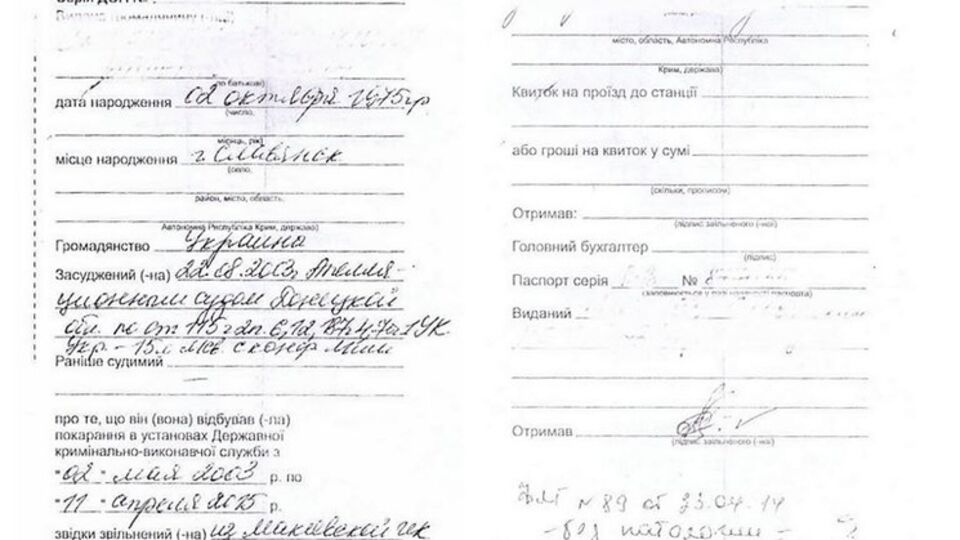 дата народження 02 октября 1975 гр
(число,
місяць, рік)
місце народження г. Славянск
(село,
район, місто, область,
Автономна Республіка Крим, держава)
Громадянство Украина
Засуджений (-на) 22.08.2003г Апелля-
ционным судом Донецкой
обл. по ст 115 ч 2 п. 6, 12, УК.
Укр - 15л с конф
Раніше судимий
про те, що він (вона) відбував (-ла)
покарання в установах Державної
кримінально-виконавчої служби з
"02" мая 2003 р. по
"11" апреля 2015 р.
звідки звільнений (-на) из Макеевской
місто, область, Автономна Республіка
Крим, держава)
Квиток на проїзд до станції
або гроші на квиток у сумі
(скільки, прописом)
Отримав:
(підпис звільненого (-ної)
Головний бухгалтер
(підпис)
Паспорт серія №
(заповнюється у разі наявності паспорта)
Виданий
Отримав
(підпис звільненого (-ної)
№ 89 от 23.04.14
-без патологии-